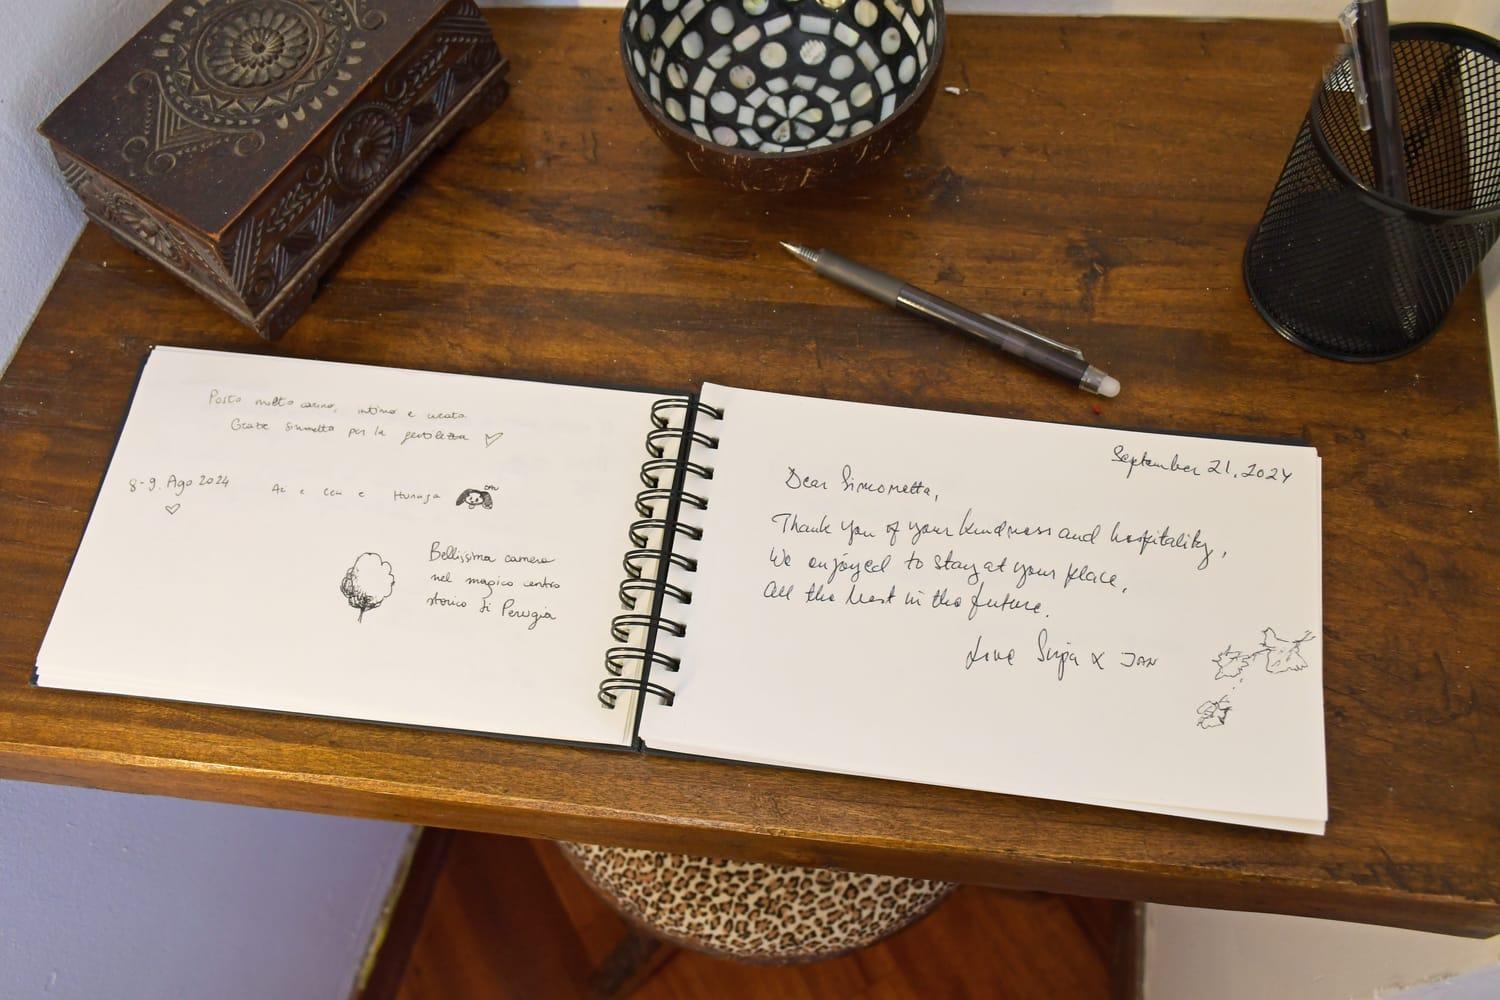 Posto molto carino, intimo e curato
Grazie Simonetta per la gentilezza
8-9. Ago 2024
e e
Bellissima camera
nel magico centro
storico di Perugia
September 21, 2024
Dear Simonetta,
Thank you of your kindness and hospitality,
We enjoyed to stay at your place,
All the best in the future.
Love & JAN